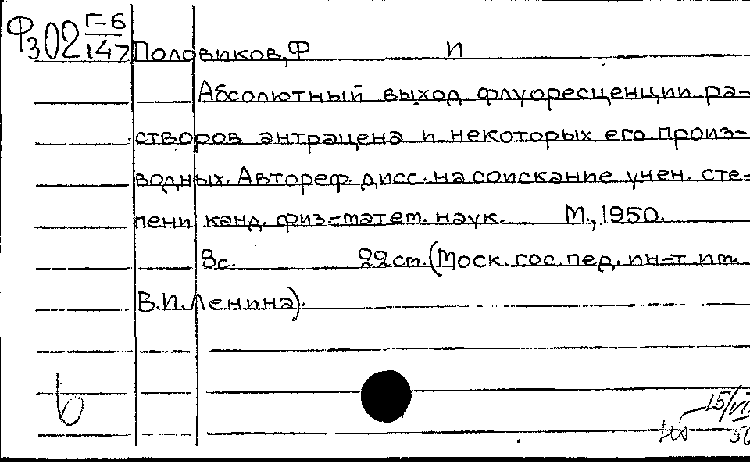 Фз02 Г-6/147
Половиков, Ф И
Абсолютный выход флуоресценции ра-
створов антрацена и некоторых его произ-
водных. Автореф. дисс. на соискание учен. сте-
пени канд. физ-матем. наук. М., 1950.
8с. 22см. (Моск. гос. пед. ин-т им.
В.И. Ленина).
15/VII
56